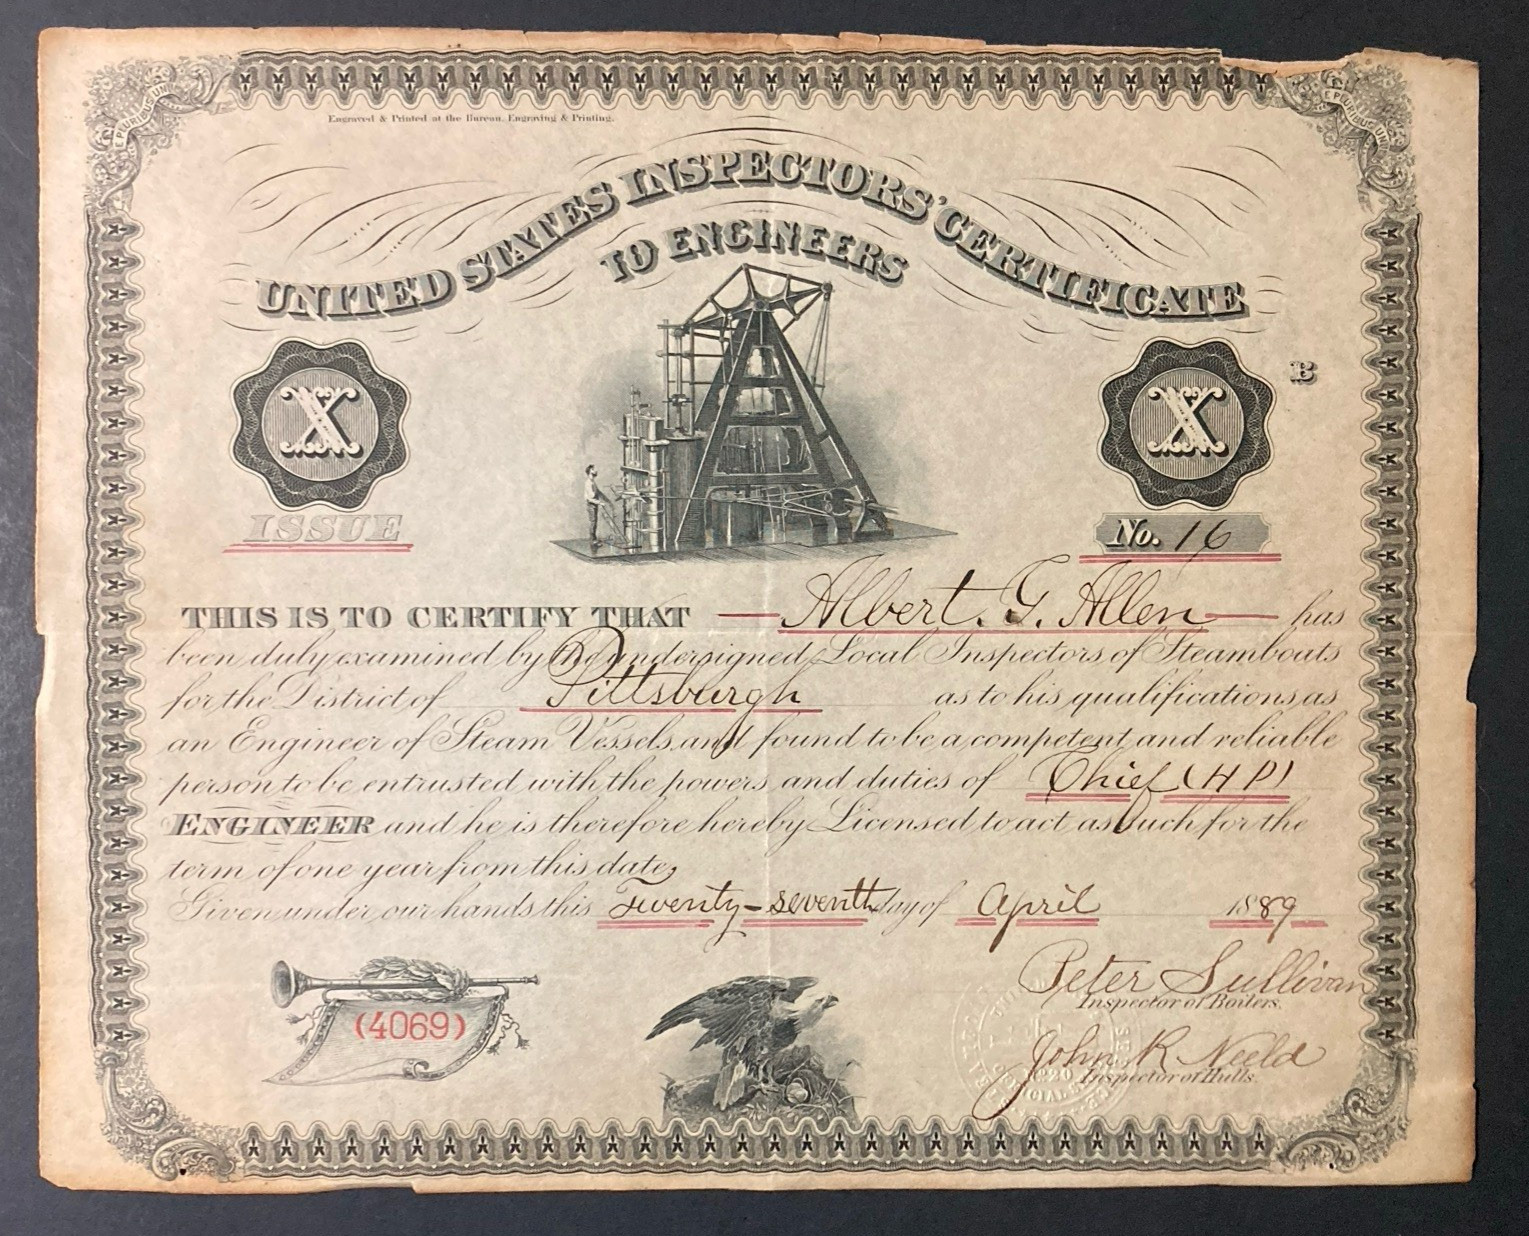 E PLURIBUS UN
E PLURIBUS UN
Engraved & Printed at the Bureau, Engraving & Printing.
UNITED STATES INSPECTORS' CERTIFICATE
TO ENGINEERS
X
X
B
ISSUE
No. 16
THIS IS TO CERTIFY THAT Albert. G. Allen has
been duly examined by the undersigned, Local Inspectors of Steamboats
for the District of Pittsburgh as to his qualifications as
an Engineer of Steam Vessels, and found to be a competent and reliable
person to be entrusted with the powers and duties of Chief (H P)
ENGINEER and he is therefore hereby Licensed to act as such for the
term of one year from this date,
Given under our hands this Twenty-seventh day of April 1889
Peter Sullivan
Inspector of Boilers.
(4069)
John R Neeld
Inspector of Hulls.